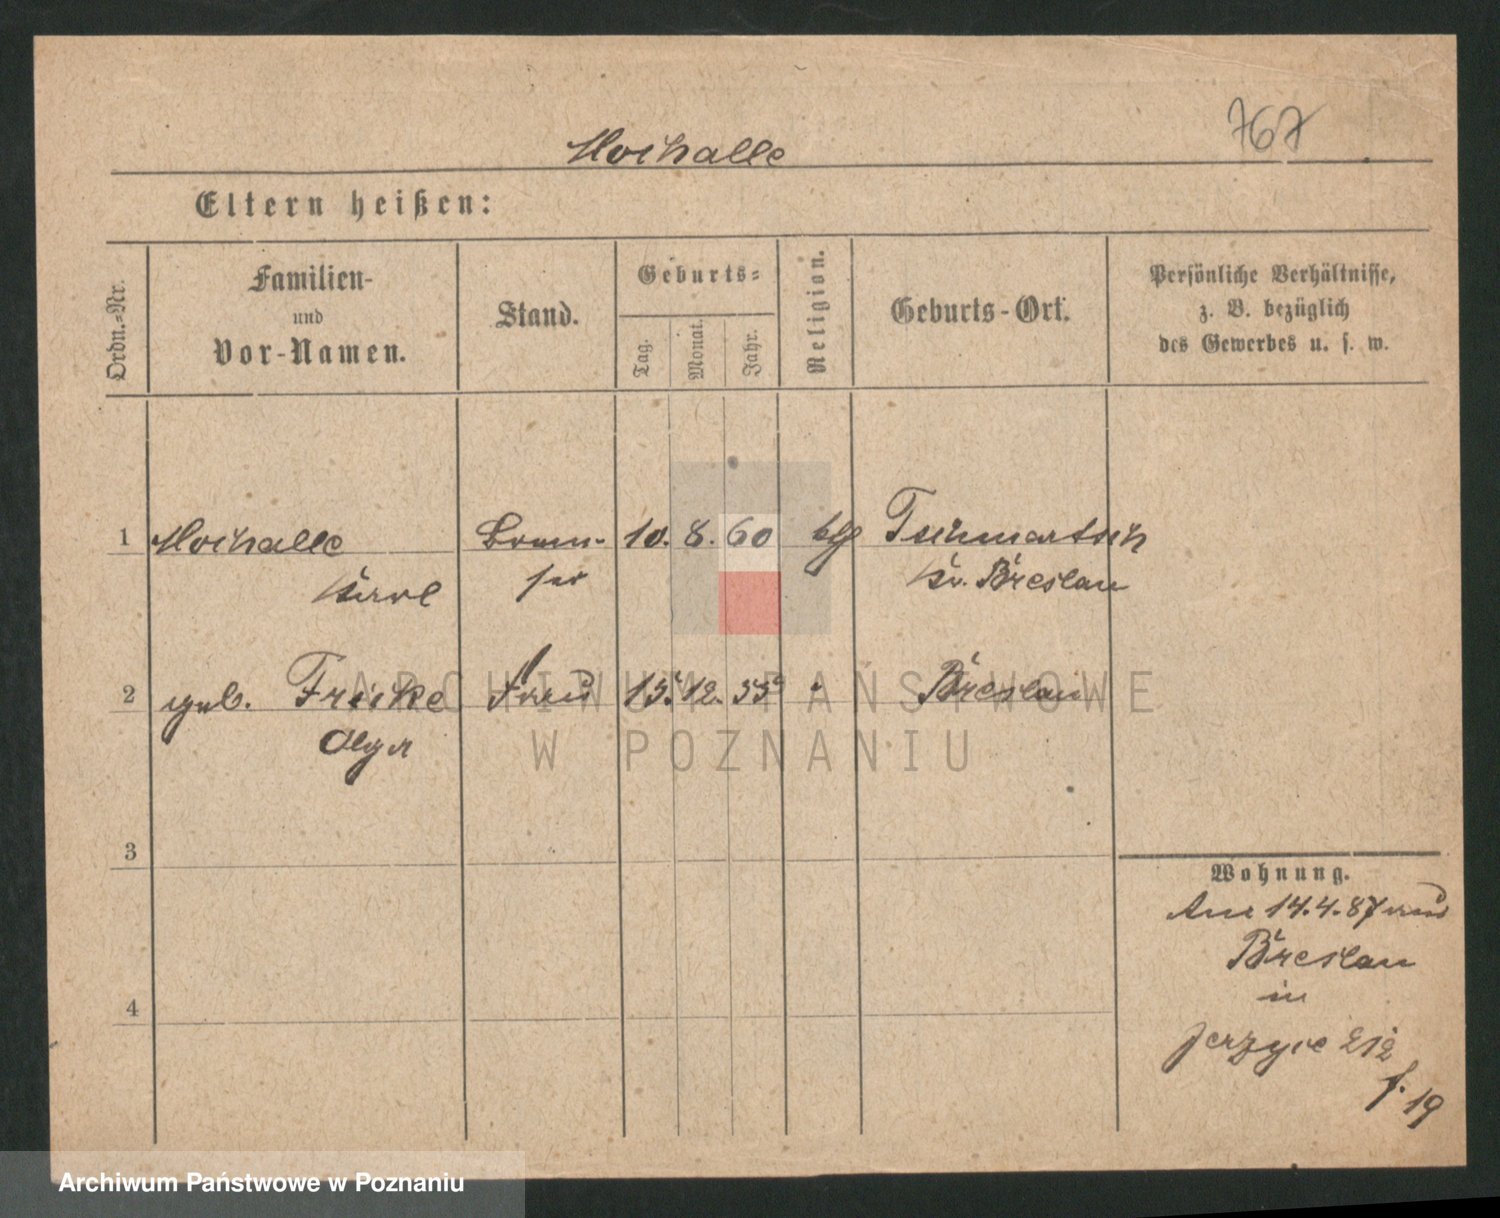 767
Moihalle
Eltern heißen:
Ordn.-Nr.
Familien-
und
Vor-Namen.
Stand.
Geburts-
Tag.
Monat.
Jahr.
Religion.
Geburts-Ort.
Persönliche Verhältnisse,
z. B. bezüglich
des Gewerbes u. s. w.
1 Moihalle 10. 8. 60 Tschmartsch
Karl Kr. Breslau
2 geb. Fricke Frau 15. 12. 55 " Breslau
Olga
3
Wohnung.
Am 14.4.87 aus
Breslau
4
in
Jerzyce 212
f. 19
ARCHIWUM PAŃSTWOWE
W POZNANIU
Archiwum Państwowe w Poznaniu